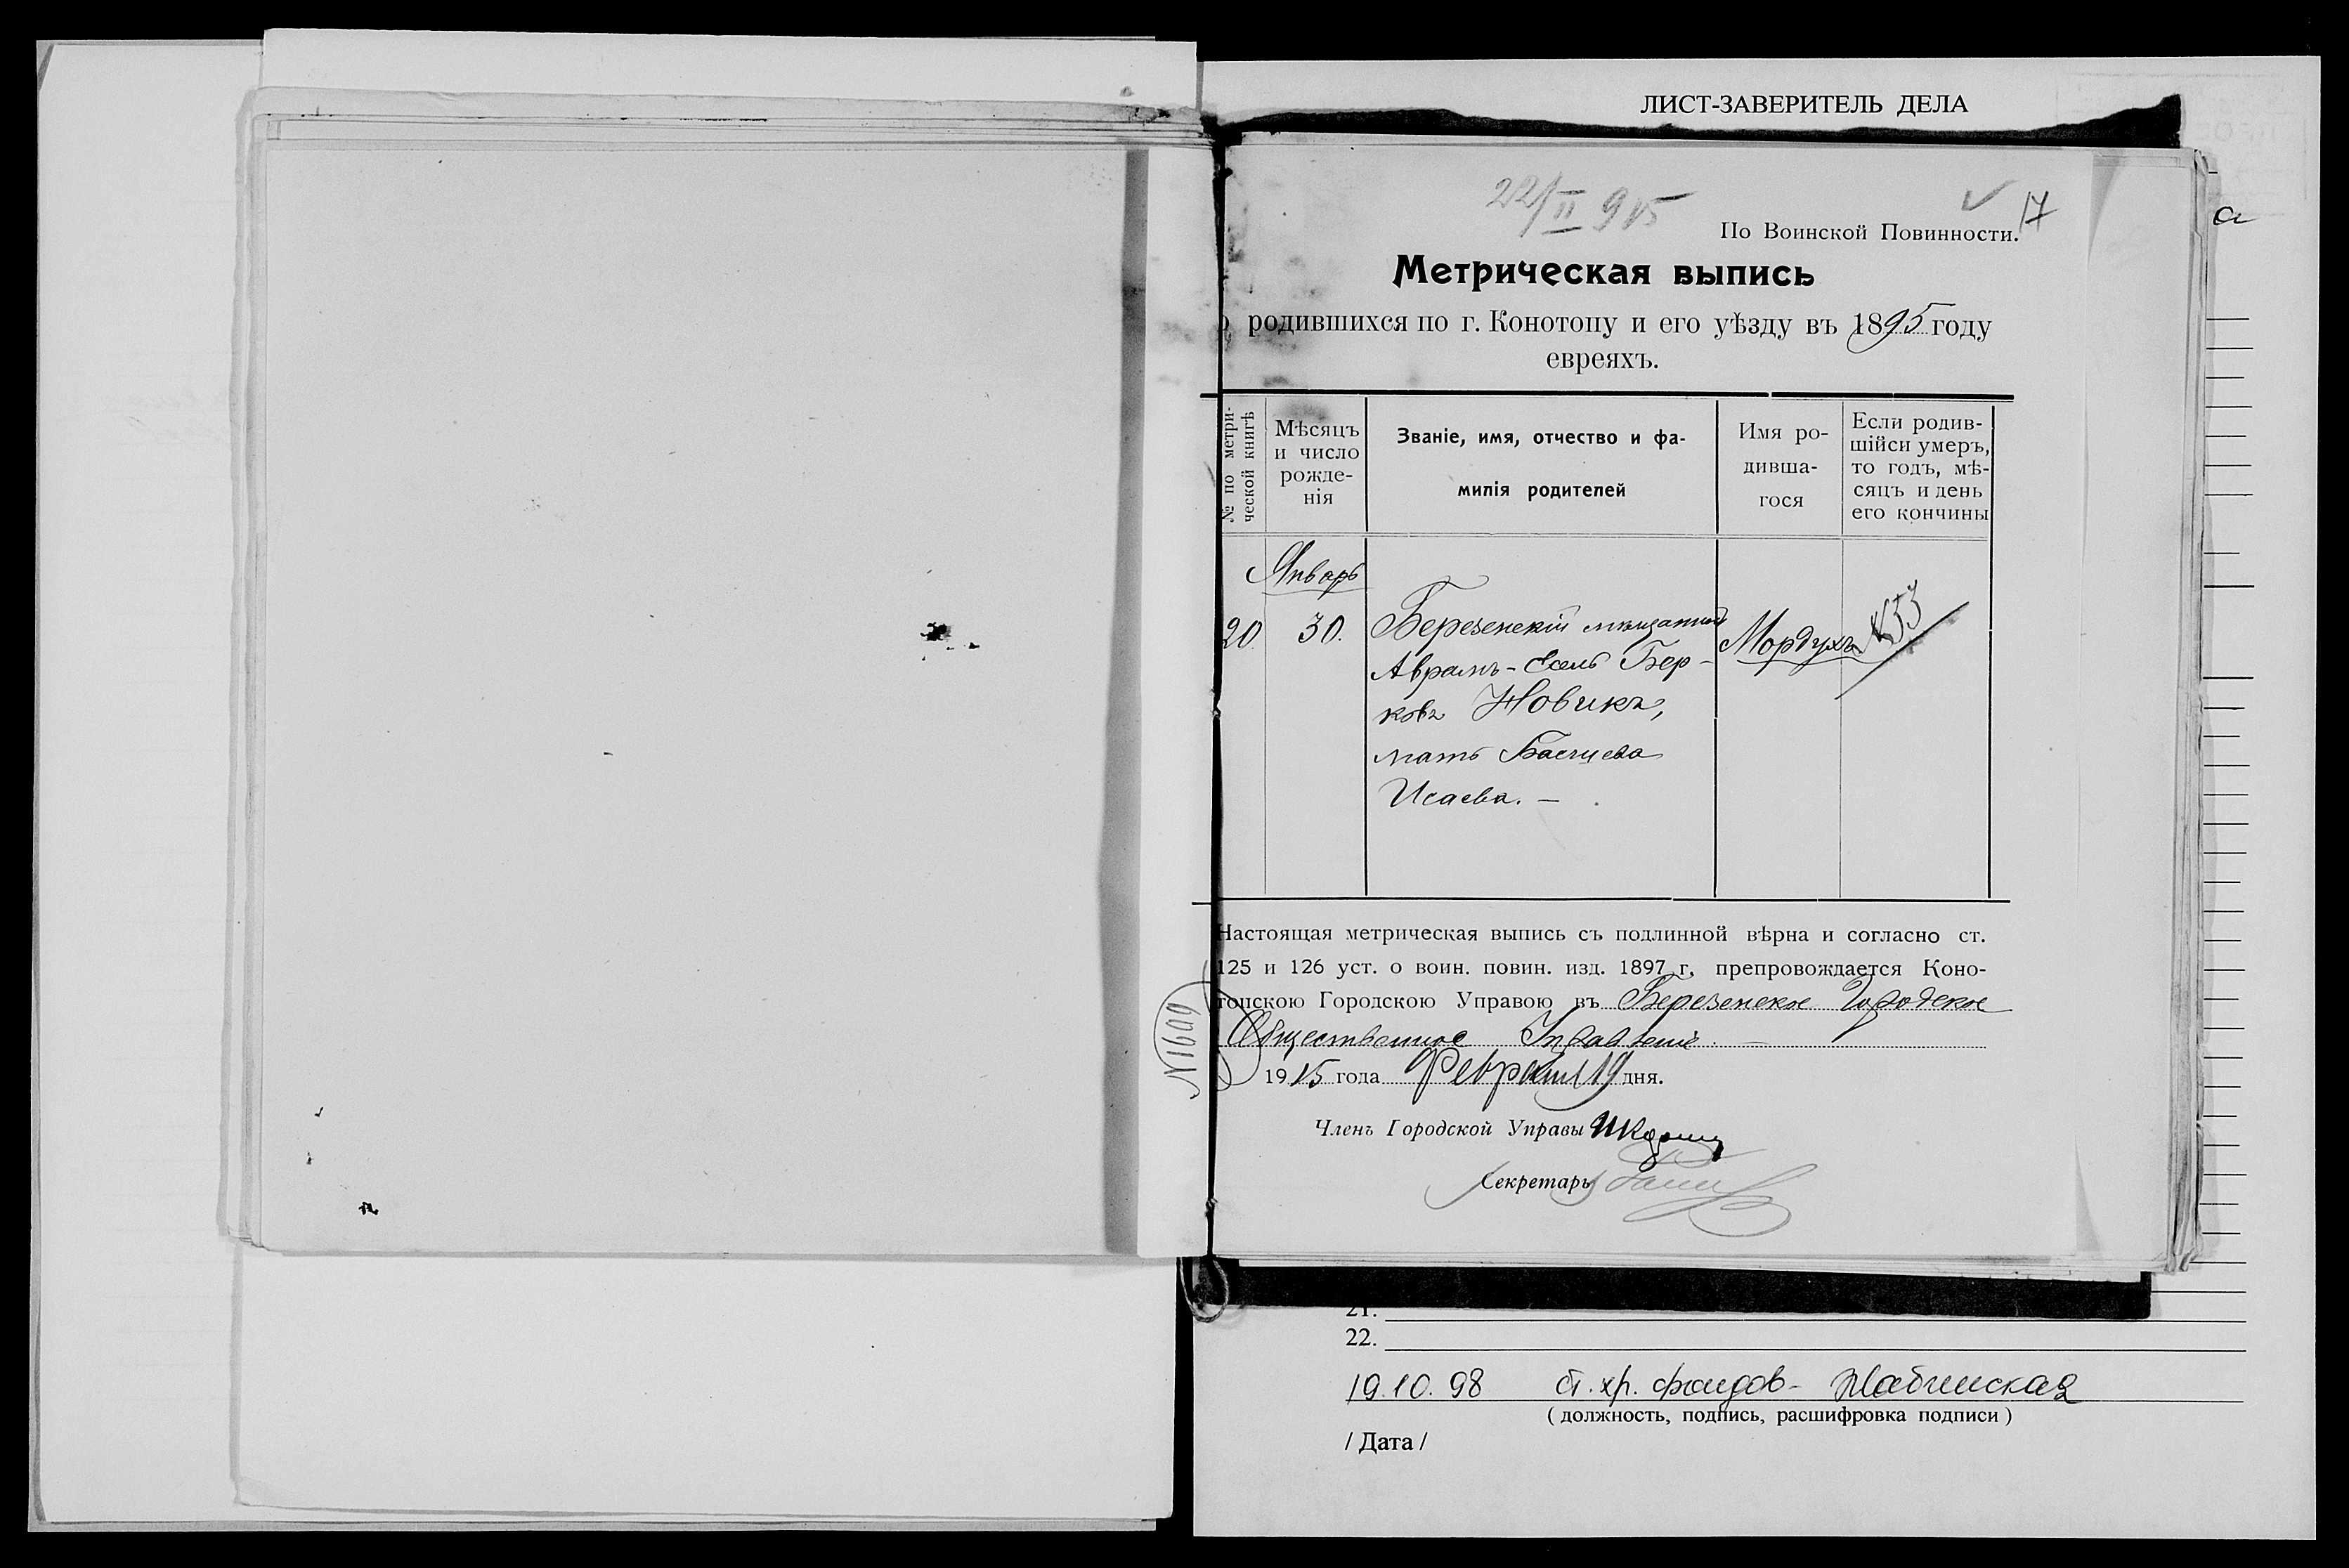 ЛИСТ-ЗАВЕРИТЕЛЬ ДЕЛА
22/II 915
17
По Воинской Повинности.
Метрическая выпись
о родившихся по г. Конотопу и его уѣзду въ 1895 году
евреяхъ.
№ по метри-
ческой книгѣ
Мѣсяцъ
и число
рожде-
нія
Званіе, имя, отчество и фа-
милія родителей
Имя ро-
дивша-
гося
Если родив-
шійся умеръ,
то годъ, мѣ-
сяцъ и день
его кончины
Январь
20 30. Березенскій мѣщанинъ Мордухъ
Аврамъ-Есель Бер-
ковъ Новикъ,
мать Басшева
Исаева. —
Настоящая метрическая выпись съ подлинной вѣрна и согласно ст.
125 и 126 уст. о воин. повин. изд. 1897 г. препровождается Коно-
топскою Городскою Управою въ Березенское Городское
Общественное Управленіе. —
1915 года Февраля 19 дня.
N 1609
Членъ Городской Управы
Секретарь
21.
22.
19.10.98 ст. хр. фондов-
( должность, подпись, расшифровка подписи )
/ Дата /